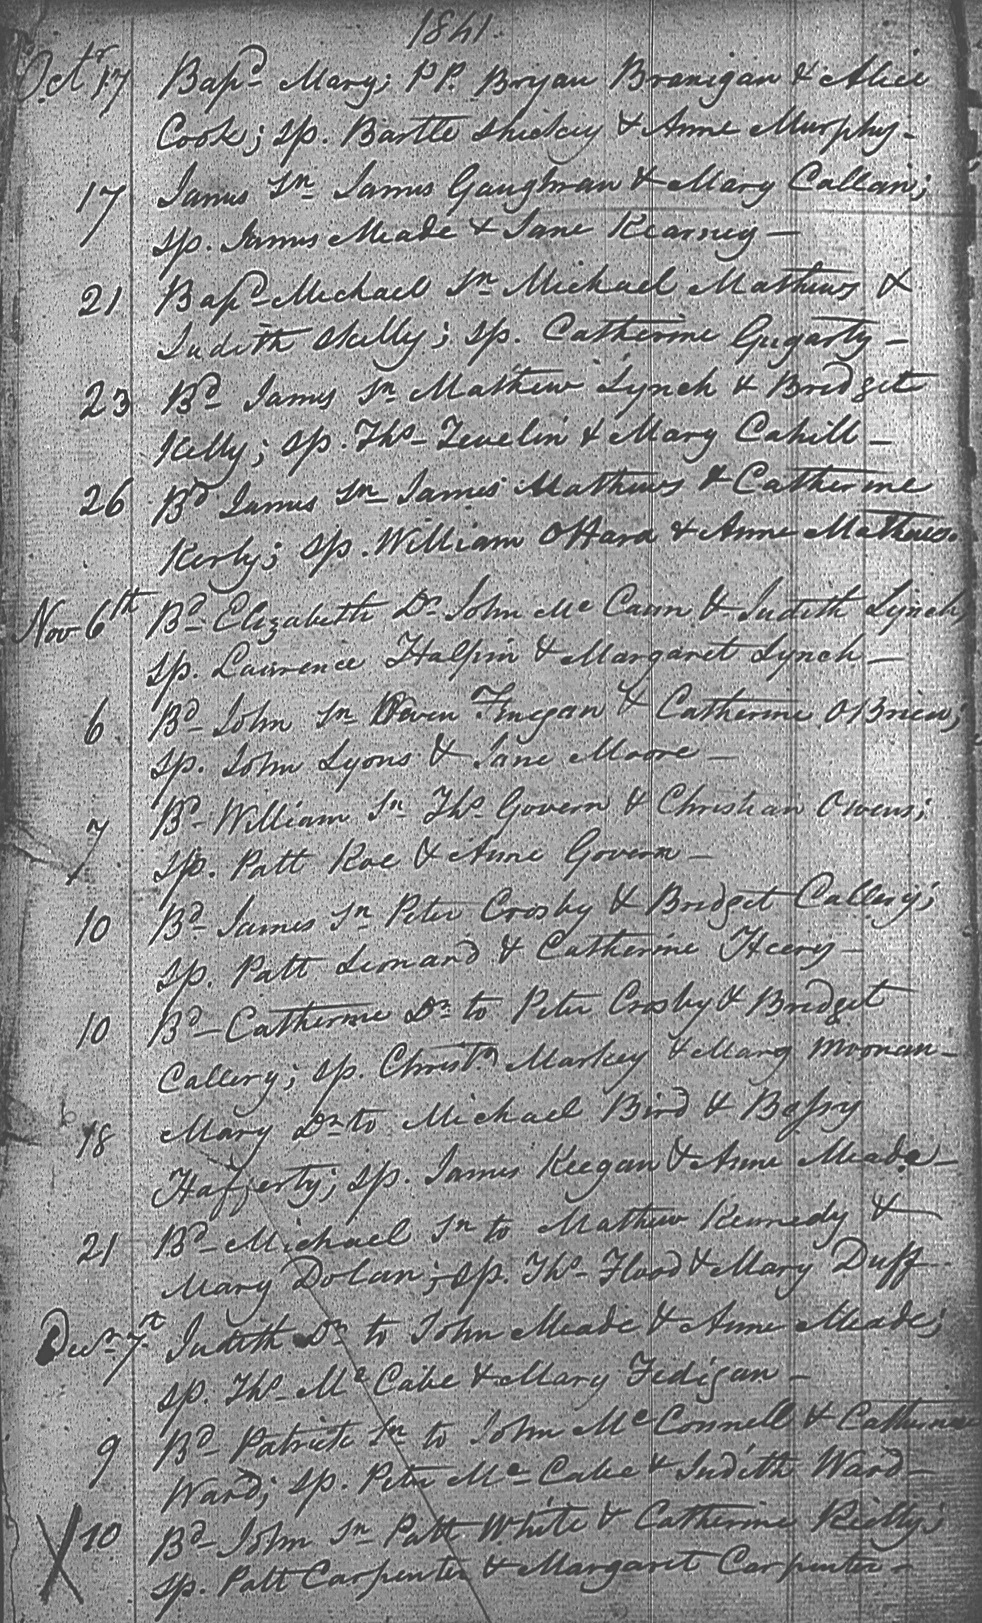 1841.
Octr 17 Bapd Mary; P.P. Bryan Branigan & Alice
Cook; Sp. Bartle Shiekey & Anne Murphy -
17 James Sn James Gaughran & Mary Callan;
Sp. James Meade & Jane Kearney -
21 Bapd Michael Sn Michael Mathews &
Judith Skelly; Sp. Catherine Gugarty -
23 Bd James Sn Mathew Lynch & Bridget
Kelly; Sp. Ths Tevelin & Mary Cahill -
26 Bd James Sn James Mathews & Catherine
Kerly; Sp. William OHara & Anne Mathews.
Nov 6th Bd Elizabeth Dr John Mc Cann & Judith Lynch,
Sp. Lawrence Halpin & Margaret Lynch -
6 Bd John Sn Owen Finegan & Catherine OBrien;
Sp. John Lyons & Jane Moore -
7 Bd William Sn Ths Govern & Christian Owens;
Sp. Patt Roe & Anne Govern -
10 Bd James Sn Peter Crosby & Bridget Callery;
Sp. Patt Lennard & Catherine Heery -
10 Bd Catherine Dr to Peter Crosby & Bridget
Callery; Sp. Christr Markey & Marg Moonan -
18 Mary Dr to Michael Bird & Bessy
Hafferty; Sp. James Keegan & Anne Meade -
21 Bd Michael Sn to Mathew Kennedy &
Mary Dolan; Sp. Ths Flood & Mary Duff
Decr 7t Judith Dr to John Meade & Anne Meade;
Sp. Ths Mc Cabe & Mary Fedigan -
9 Bd Patrick Sn to John Mc Connell & Catherine
Ward; Sp. Peter Mc Cabe & Judith Ward -
X 10 Bd John Sn Patt White & Catherine Reilly;
Sp. Patt Carpenter & Margaret Carpenter -